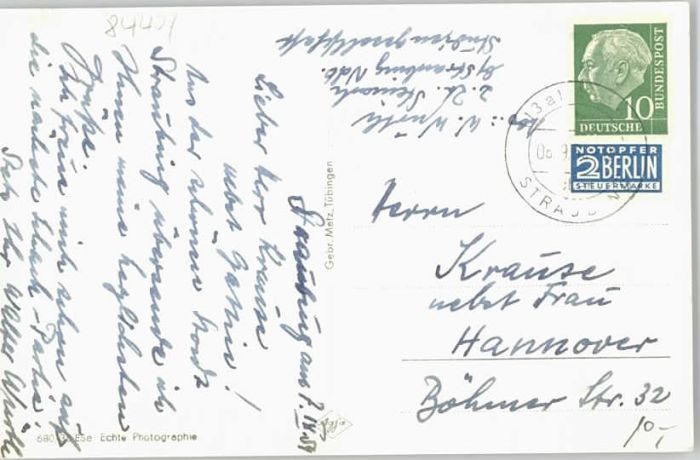 84401
Straubing am 7. IX. 54
Lieber Herr Krause
nebst Gattin!
Aus der schönen Stadt
Straubing übersende ich
Ihnen meine herzlichsten
Grüße.
Ich freue mich schon auf
die nächste Schach-Partie.
Stets Ihr Walter Wurtz
680 Ese Echte Photographie
Gebr. Metz, Tübingen
Abs.: W. Wurtz
z. Zt.
b/ Straubing Ndb.
Studiengesellschaft
10
DEUTSCHE
BUNDESPOST
NOTOPFER
2 BERLIN
STEUERMARKE
STRAUBING
Herrn
Krause
nebst Frau
Hannover
Böhmer Str. 32
10,-